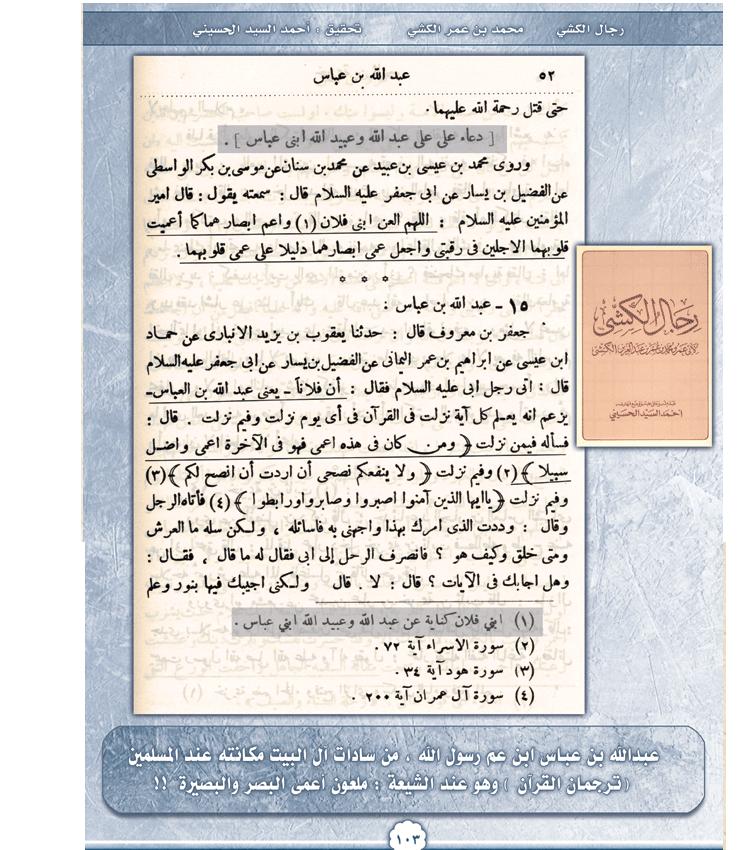 رجال الكشي محمد بن عمر الكشي تحقيق : أحمد السيد الحسيني
٥٢ عبد الله بن عباس
حتى قتل رحمة الله عليهما .
[ دعاء على على عبد الله وعبيد الله ابنى عباس ] .
وروى محمد بن عيسى بن عبيد عن محمد بن سنان عن موسى بن بكر الواسطى
عن الفضيل بن يسار عن ابى جعفر عليه السلام قال : سمعته يقول : قال امير
المؤمنين عليه السلام : اللهم العن ابنى فلان (١) واعم ابصارهما كما أعميت
قلوبهما الاجلين فى رقبتى واجعل عمى ابصارهما دليلا على عمى قلوبهما .
* * *
١٥ ـ عبد الله بن عباس :
جعفر بن معروف قال : حدثنا يعقوب بن يزيد الانبارى عن حماد
ابن عيسى عن ابراهيم بن عمر اليمانى عن الفضيل بن يسار عن ابى جعفر عليه السلام
قال : اتى رجل ابى عليه السلام فقال : أن فلاناً ـ يعنى عبد الله بن العباس ـ
يزعم انه يعلم كل آية نزلت فى القرآن فى أى يوم نزلت وفيم نزلت . قال :
فسأله فيمن نزلت ﴿ ومن كان فى هذه اعمى فهو فى الآخرة اعمى واضل
سبيلا ﴾ (٢) وفيم نزلت ﴿ ولا ينفعكم نصحى أن اردت أن انصح لكم ﴾ (٣)
وفيم نزلت ﴿ ياايها الذين آمنوا اصبروا وصابروا ورابطوا ﴾ (٤) فأتاه الرجل
وقال : وددت الذى امرك بهذا واجهنى به فاسائله ، ولكن سله ما العرش
ومتى خلق وكيف هو ؟ فانصرف الرجل إلى ابى فقال له ما قال ، فقال :
وهل اجابك فى الآيات ؟ قال : لا . قال ولكنى اجيبك فيها بنور وعلم
(١) ابني فلان كناية عن عبد الله وعبيد الله ابني عباس .
(٢) سورة الاسراء آية ٧٢ .
(٣) سورة هود آية ٣٤ .
(٤) سورة آل عمران آية ٢٠٠ .
رجال الكشى
احمد السيد الحسيني
عبدالله بن عباس ابن عم رسول الله ، من سادات آل البيت مكانته عند المسلمين
( ترجمان القرآن ) وهو عند الشيعة : ملعون أعمى البصر والبصيرة !!
١٠٣